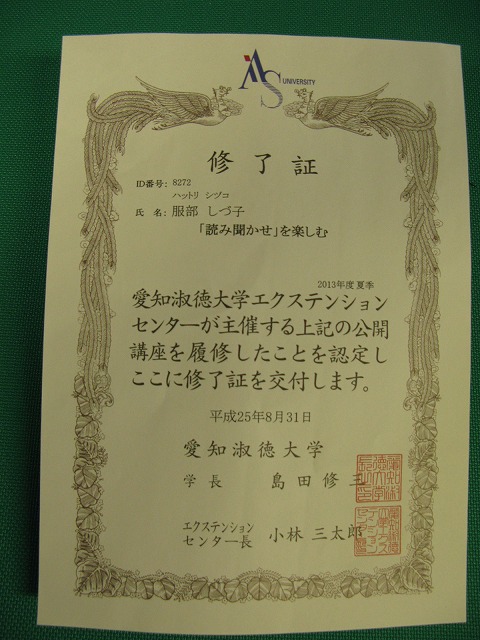 AS
UNIVERSITY
修了証
ID番号: 8272
ハットリ シヅコ
氏 名: 服部 しづ子
「読み聞かせ」を楽しむ
2013年度 夏季
愛知淑徳大学エクステンション
センターが主催する上記の公開
講座を履修したことを認定し
ここに修了証を交付します。
平成25年8月31日
愛知淑徳大学
学 長 島田修三
エクステンション
センター長 小林 三太郎